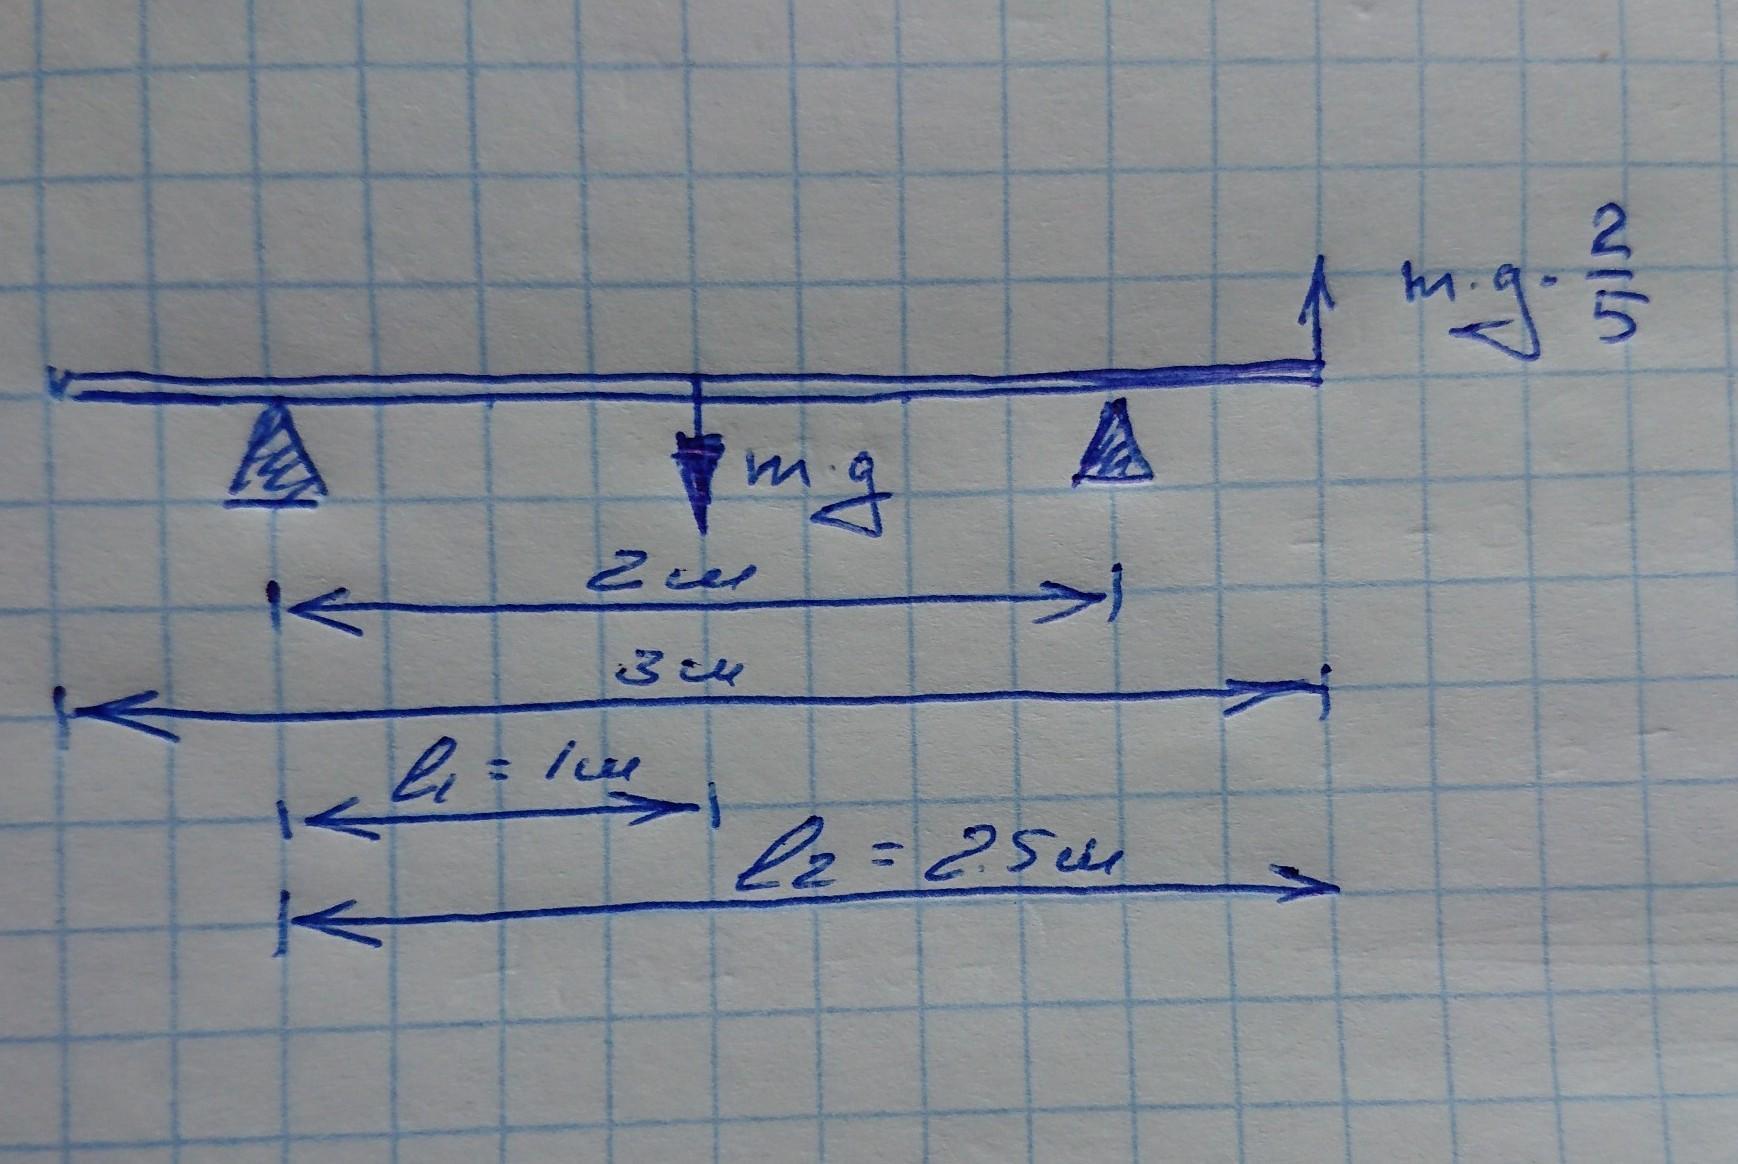 m·g·2/5
m·g
2 см
3 см
l₁ = 1 см
l₂ = 2.5 см